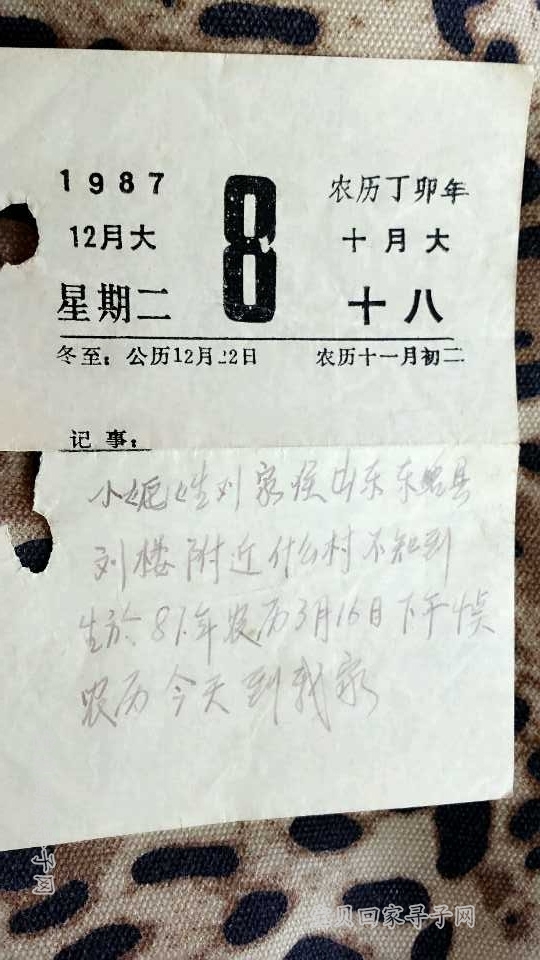 1987
8
农历丁卯年
12月大
十月大
星期二
十八
冬至：公历12月22日
农历十一月初二
记事：
小妮姓刘家侯山东东明县
刘楼附近什么村不知到
生於87年农历3月16日下午
农历今天到我家
贝回家寻子网